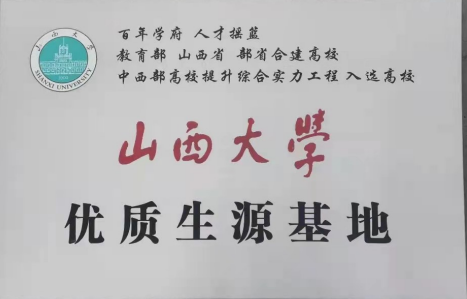 山西大学
SHANXI UNIVERSITY
百年学府 人才摇篮
教育部 山西省 部省合建高校
中西部高校提升综合实力工程入选高校
山西大學
优质生源基地